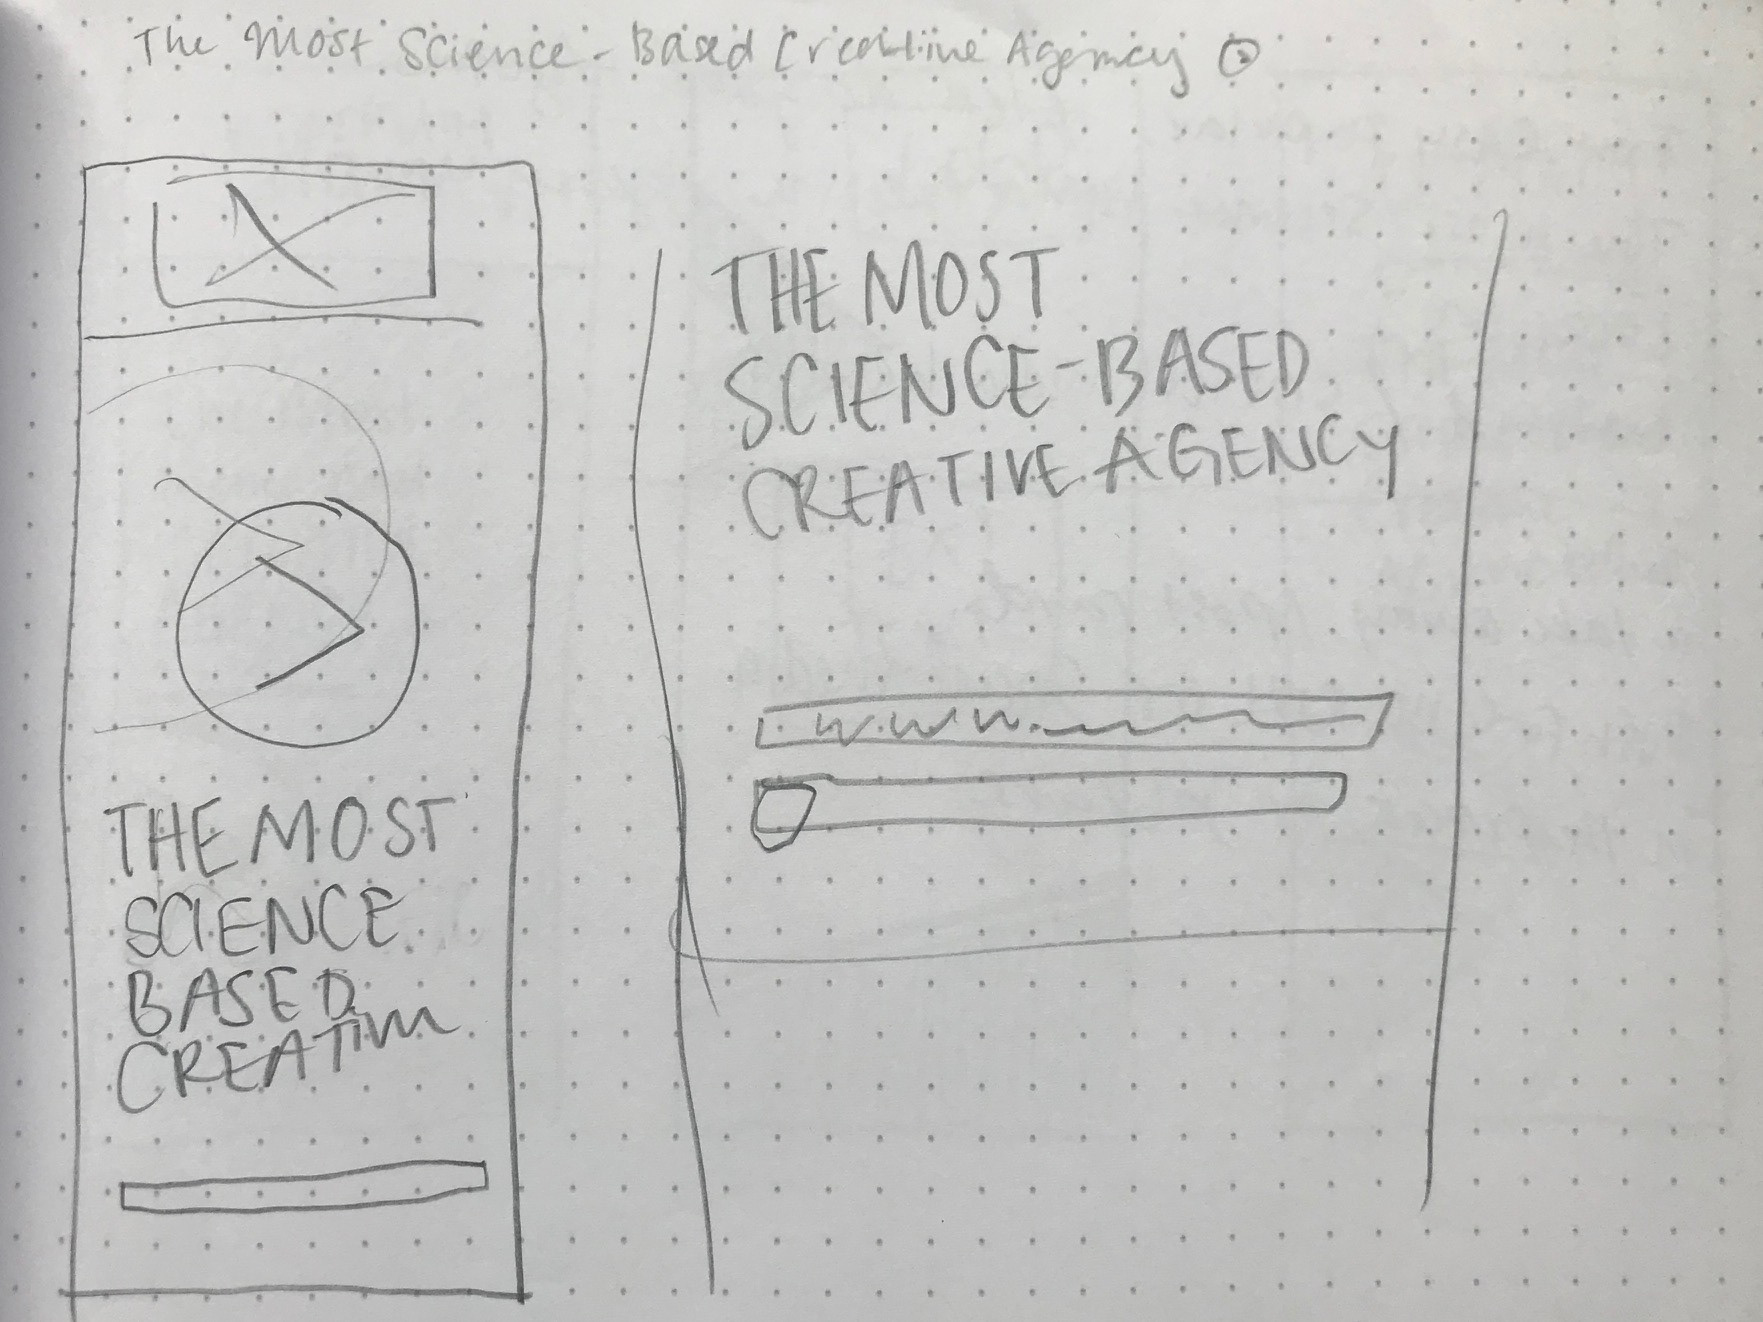 The Most Science-Based Creative Agency
THE MOST
SCIENCE
BASED
CREATIVE
THE MOST
SCIENCE-BASED
CREATIVE AGENCY
www.